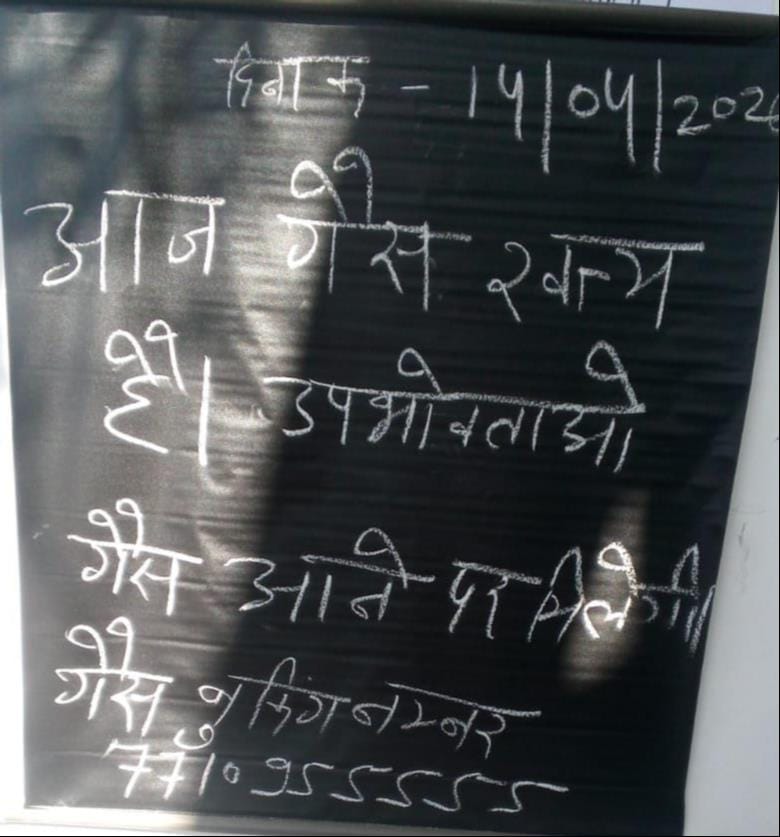 दिनांक - 14/04/202
आज गैस खत्म
है। उपभोक्ताओ
गैस आने पर मिलेगी।
गैस बुकिंग नम्बर
7710955555